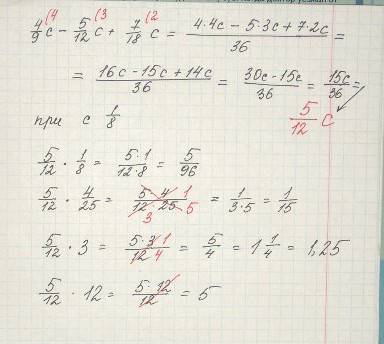 4/9 c (4 − 5/12 c (3 + 7/18 c (2 = (4·4c − 5·3c + 7·2c)/36 =
= (16c − 15c + 14c)/36 = (30c − 15c)/36 = 15c/36 =
5/12 c
при c 1/8
5/12 · 1/8 = 5·1/12·8 = 5/96
5/12 · 4/25 = 5·4 1/12·25 3 5 = 1/3·5 = 1/15
5/12 · 3 = 5·3 1/12 4 = 5/4 = 1 1/4 = 1,25
5/12 · 12 = 5·12/12 = 5